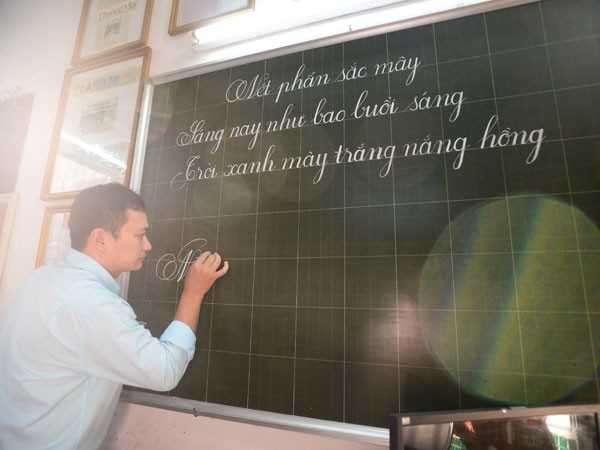 Nét phấn sắc mây
Sáng nay như bao buổi sáng
Trời xanh mây trắng nắng hồng
N